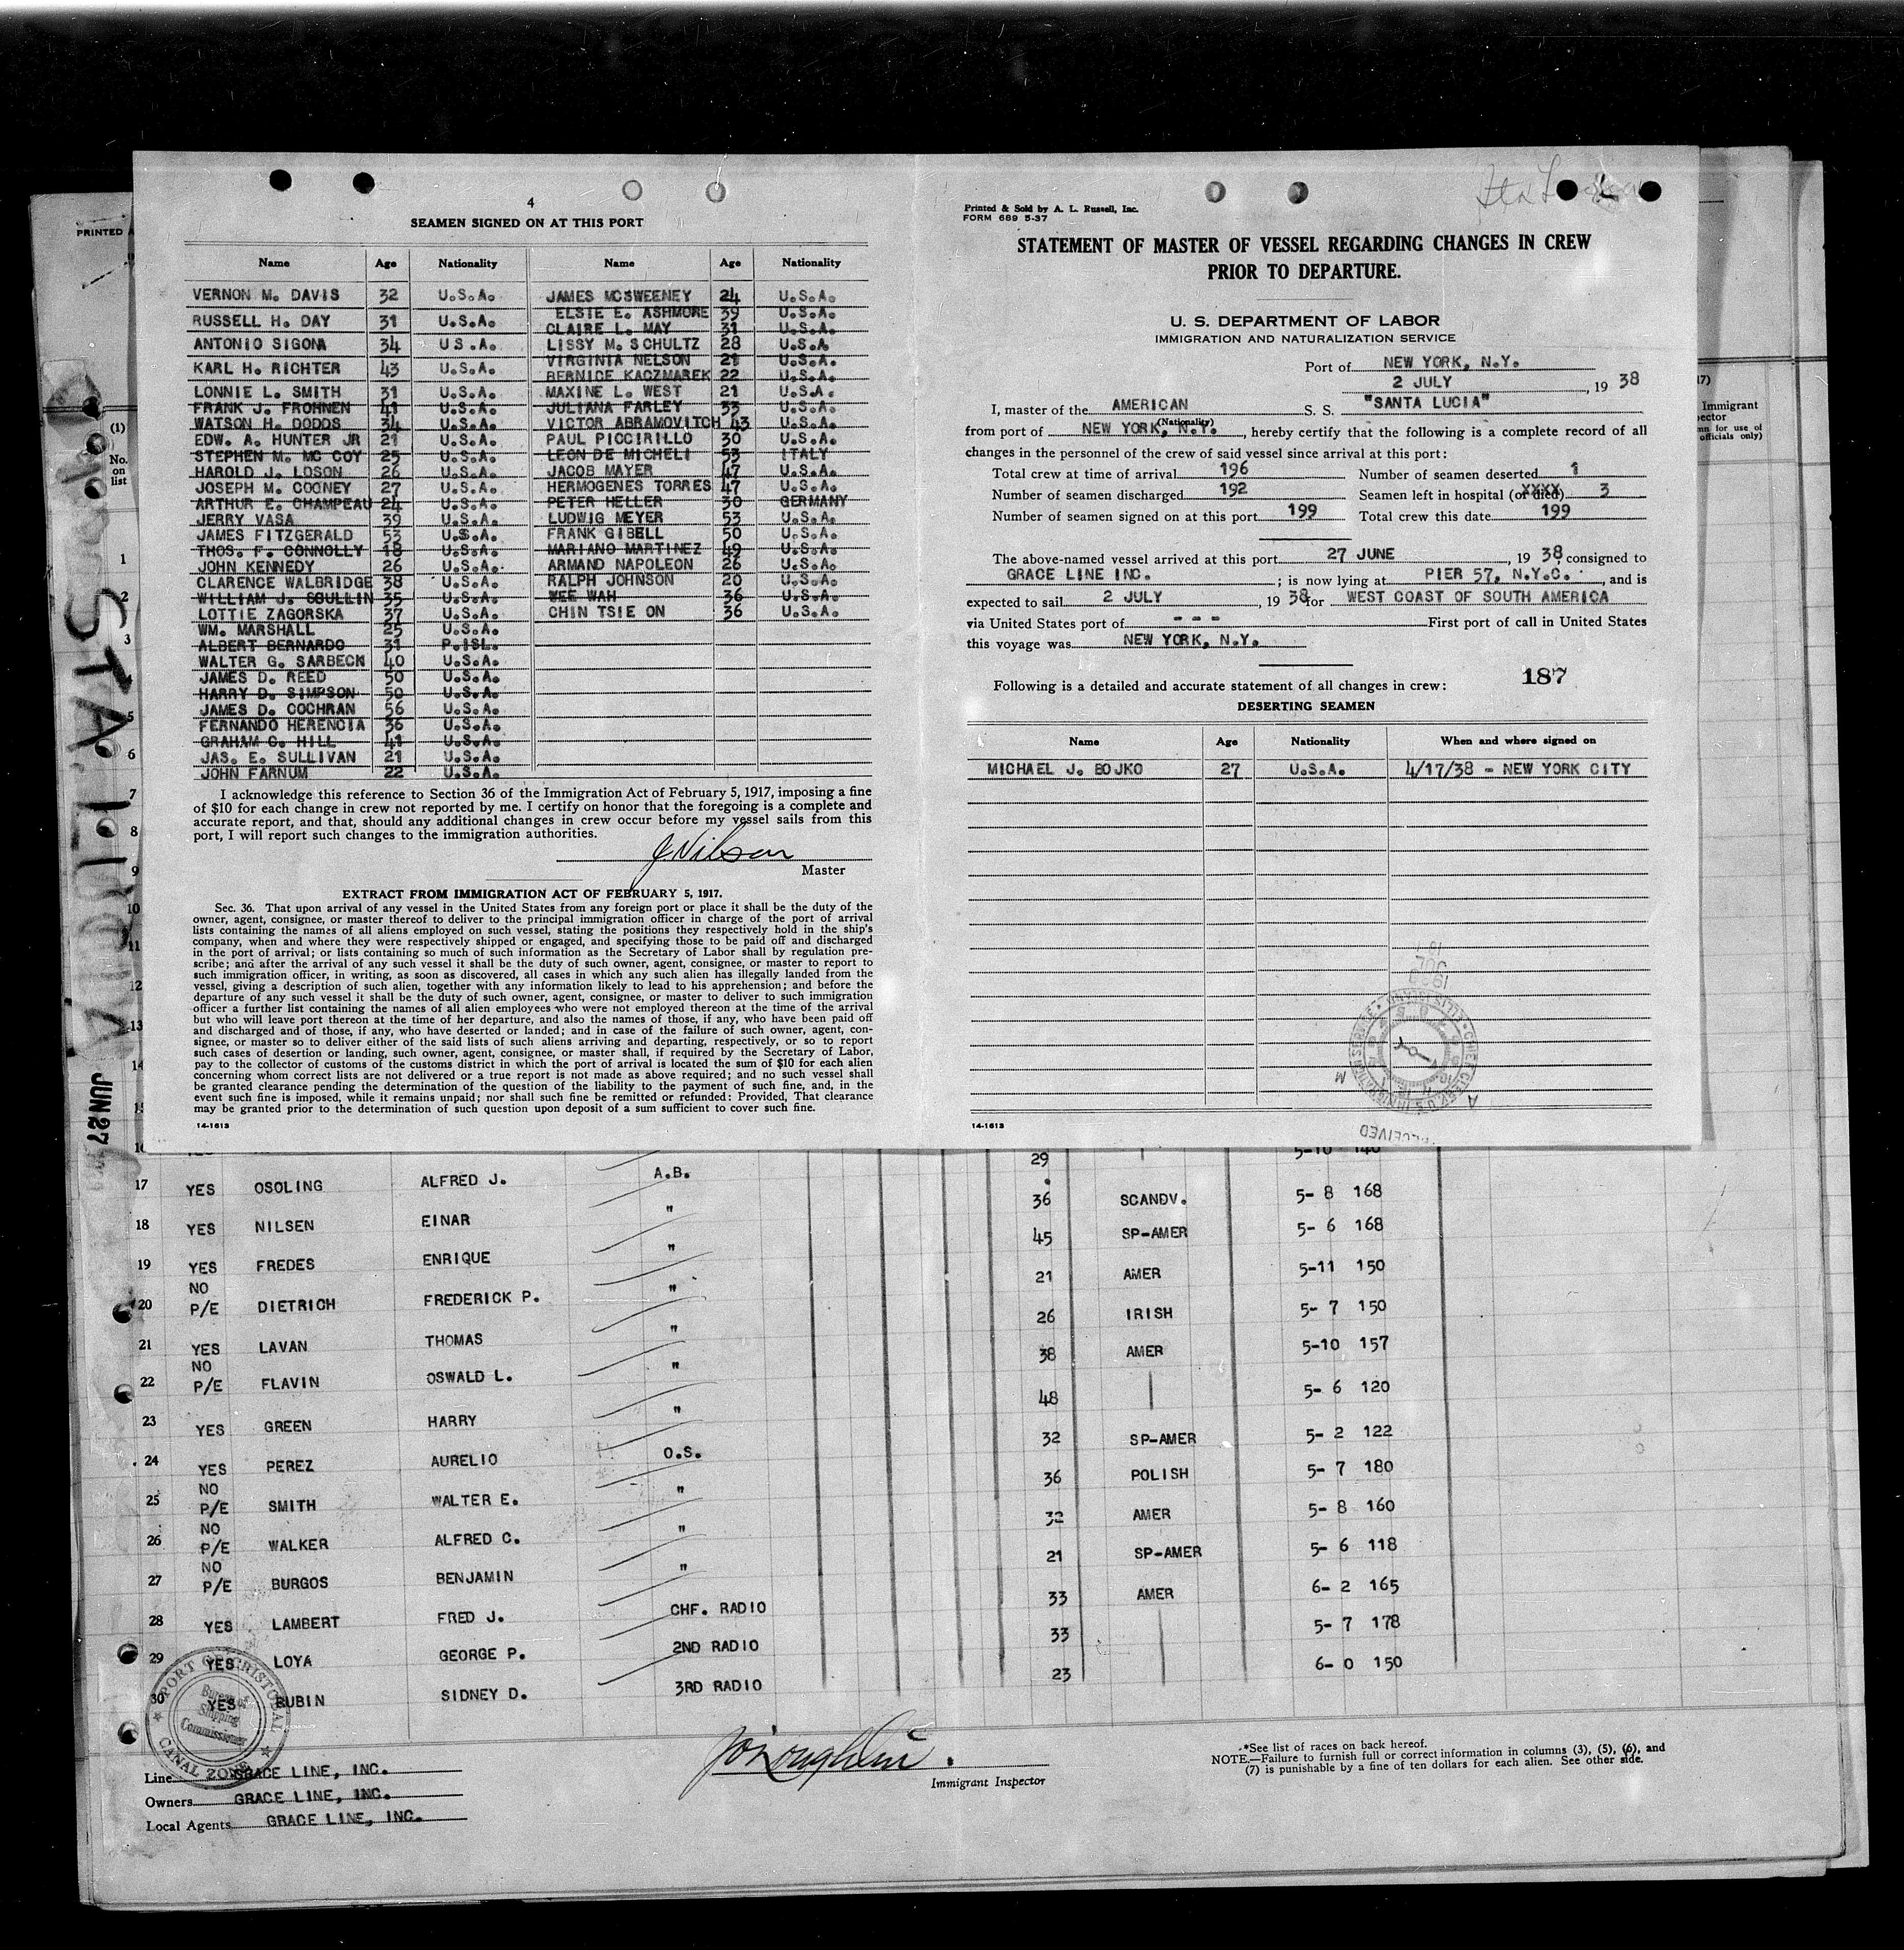 4
SEAMEN SIGNED ON AT THIS PORT
Name Age Nationality Name Age Nationality
VERNON M. DAVIS 32 U.S.A. JAMES MCSWEENEY 24 U.S.A.
ELSIE E. ASHMORE 39 U.S.A.
RUSSELL H. DAY 31 U.S.A. CLAIRE L. MAY 31 U.S.A.
ANTONIO SIGONA 34 U S .A. LISSY M. SCHULTZ 28 U.S.A
VIRGINIA NELSON 21 U.S.A.
KARL H. RICHTER 43 U.S.A. BERNICE KACZMAREK 22 U.S.A.
LONNIE L. SMITH 31 U.S.A. MAXINE L. WEST 21 U.S.A.
FRANK J. FROHNEN 41 U.S.A. JULIANA FARLEY 33 U.S.A.
WATSON H. DODDS 34 U.S.A. VICTOR ABRAMOVITCH 43 U.S.A.
EDW. A. HUNTER JR 21 U.S.A. PAUL PICCIRILLO 30 U.S.A.
STEPHEN M. MC COY 25 U.S.A. LEON DE MICHELI 53 ITALY
HAROLD J. LOSON 26 U.S.A. JACOB MAYER 47 U.S.A.
JOSEPH M. COONEY 27 U.S.A. HERMOGENES TORRES 47 U.S.A.
ARTHUR E. CHAMPEAU 24 U.S.A. PETER HELLER 30 GERMANY
JERRY VASA 39 U.S.A. LUDWIG MEYER 53 U.S.A.
JAMES FITZGERALD 53 U.S.A. FRANK GIBELL 50 U.S.A.
THOS. F. CONNOLLY 18 U.S.A. MARIANO MARTINEZ 49 U.S.A.
JOHN KENNEDY 26 U.S.A. ARMAND NAPOLEON 26 U.S.A.
CLARENCE WALBRIDGE 38 U.S.A. RALPH JOHNSON 20 U.S.A.
WILLIAM J. SCULLIN 35 U.S.A. WEE WAH 36 U.S.A.
LOTTIE ZAGORSKA 37 U.S.A. CHIN TSIE ON 36 U.S.A.
WM. MARSHALL 25 U.S.A.
ALBERT BERNARDO 31 P.ISL.
WALTER G. SARBECK 40 U.S.A.
JAMES D. REED 50 U.S.A.
HARRY D. SIMPSON 50 U.S.A.
JAMES D. COCHRAN 56 U.S.A.
FERNANDO HERENCIA 36 U.S.A.
GRAHAM C. HILL 41 U.S.A.
JAS. E. SULLIVAN 21 U.S.A.
JOHN FARNUM 22 U.S.A.
I acknowledge this reference to Section 36 of the Immigration Act of February 5, 1917, imposing a fine
of $10 for each change in crew not reported by me. I certify on honor that the foregoing is a complete and
accurate report, and that, should any additional changes in crew occur before my vessel sails from this
port, I will report such changes to the immigration authorities.
Master
EXTRACT FROM IMMIGRATION ACT OF FEBRUARY 5, 1917.
Sec. 36. That upon arrival of any vessel in the United States from any foreign port or place it shall be the duty of the
owner, agent, consignee, or master thereof to deliver to the principal immigration officer in charge of the port of arrival
lists containing the names of all aliens employed on such vessel, stating the positions they respectively hold in the ship's
company, when and where they were respectively shipped or engaged, and specifying those to be paid off and discharged
in the port of arrival; or lists containing so much of such information as the Secretary of Labor shall by regulation pre-
scribe; and after the arrival of any such vessel it shall be the duty of such owner, agent, consignee, or master to report to
such immigration officer, in writing, as soon as discovered, all cases in which any such alien has illegally landed from the
vessel, giving a description of such alien, together with any information likely to lead to his apprehension; and before the
departure of any such vessel it shall be the duty of such owner, agent, consignee, or master to deliver to such immigration
officer a further list containing the names of all alien employees who were not employed thereon at the time of the arrival
but who will leave port thereon at the time of her departure, and also the names of those, if any, who have been paid off
and discharged and of those, if any, who have deserted or landed; and in case of the failure of such owner, agent, con-
signee, or master so to deliver either of the said lists of such aliens arriving and departing, respectively, or so to report
such cases of desertion or landing, such owner, agent, consignee, or master shall, if required by the Secretary of Labor,
pay to the collector of customs of the customs district in which the port of arrival is located the sum of $10 for each alien
concerning whom correct lists are not delivered or a true report is not made as above required; and no such vessel shall
be granted clearance pending the determination of the question of the liability to the payment of such fine, and, in the
event such fine is imposed, while it remains unpaid; nor shall such fine be remitted or refunded: Provided, That clearance
may be granted prior to the determination of such question upon deposit of a sum sufficient to cover such fine.
14-1613
Printed & Sold by A. L. Russell, Inc.
FORM 689 5-37
STATEMENT OF MASTER OF VESSEL REGARDING CHANGES IN CREW
PRIOR TO DEPARTURE.
U. S. DEPARTMENT OF LABOR
IMMIGRATION AND NATURALIZATION SERVICE
Port of NEW YORK, N.Y.
2 JULY , 19 38
I, master of the AMERICAN S. S. "SANTA LUCIA"
(Nationality)
from port of NEW YORK, N.Y. , hereby certify that the following is a complete record of all
changes in the personnel of the crew of said vessel since arrival at this port:
Total crew at time of arrival 196 Number of seamen deserted 1
Number of seamen discharged 192 Seamen left in hospital (or died) 3
Number of seamen signed on at this port 199 Total crew this date 199
The above-named vessel arrived at this port 27 JUNE , 19 38, consigned to
GRACE LINE INC. ; is now lying at PIER 57, N.Y.C. , and is
expected to sail 2 JULY , 19 38 for WEST COAST OF SOUTH AMERICA
via United States port of - - - First port of call in United States
this voyage was NEW YORK, N.Y.
187
Following is a detailed and accurate statement of all changes in crew:
DESERTING SEAMEN
Name Age Nationality When and where signed on
MICHAEL J. BOJKO 27 U.S.A. 4/17/38 - NEW YORK CITY
14-1613
PRINTED
(1)
No. on list
Immigrant
1
2
3
4
5
6
7
8
9
10
11
12
13
14
15
JUN 27
29 5-10 140
17 YES OSOLING ALFRED J. A.B. 36 SCANDV. 5- 8 168
18 YES NILSEN EINAR " 45 SP-AMER 5- 6 168
19 YES FREDES ENRIQUE " 21 AMER 5-11 150
20 NO P/E DIETRICH FREDERICK P. " 26 IRISH 5- 7 150
21 YES LAVAN THOMAS " 38 AMER 5-10 157
22 NO P/E FLAVIN OSWALD L. " 48 5- 6 120
23 YES GREEN HARRY " 32 SP-AMER 5- 2 122
24 YES PEREZ AURELIO O.S. 36 POLISH 5- 7 180
25 NO P/E SMITH WALTER E. " 32 AMER 5- 8 160
26 NO P/E WALKER ALFRED C. " 21 SP-AMER 5- 6 118
27 NO P/E BURGOS BENJAMIN " 33 AMER 6- 2 165
28 YES LAMBERT FRED J. CHF. RADIO 33 5- 7 178
29 YES LOYA GEORGE P. 2ND RADIO 23 6- 0 150
30 YES RUBIN SIDNEY D. 3RD RADIO
PORT OF CRISTOBAL
Bureau of
Shipping
Commissioner
CANAL ZONE
Line GRACE LINE, INC.
Owners GRACE LINE, INC.
Local Agents GRACE LINE, INC.
Immigrant Inspector
*See list of races on back hereof.
NOTE.—Failure to furnish full or correct information in columns (3), (5), (6), and
(7) is punishable by a fine of ten dollars for each alien. See other side.